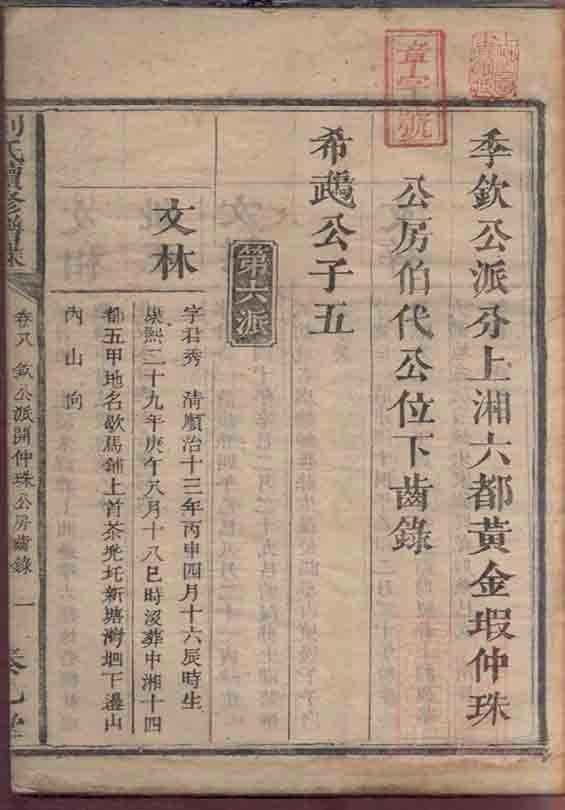 章字號
季欽公派分上湘六都黃金塅仲珠
公房伯代公位下齒錄
希鵡公子五
第六派
文林
字君秀 清順治十三年丙申四月十六辰時生
康熙二十九年庚午八月十八巳時沒葬中湘十四
都五甲地名歇馬鋪上首茶兜圫新塘灣垇下邊山
內山向
劉氏續修譜
卷八 欽公派開仲珠公房齒錄 一